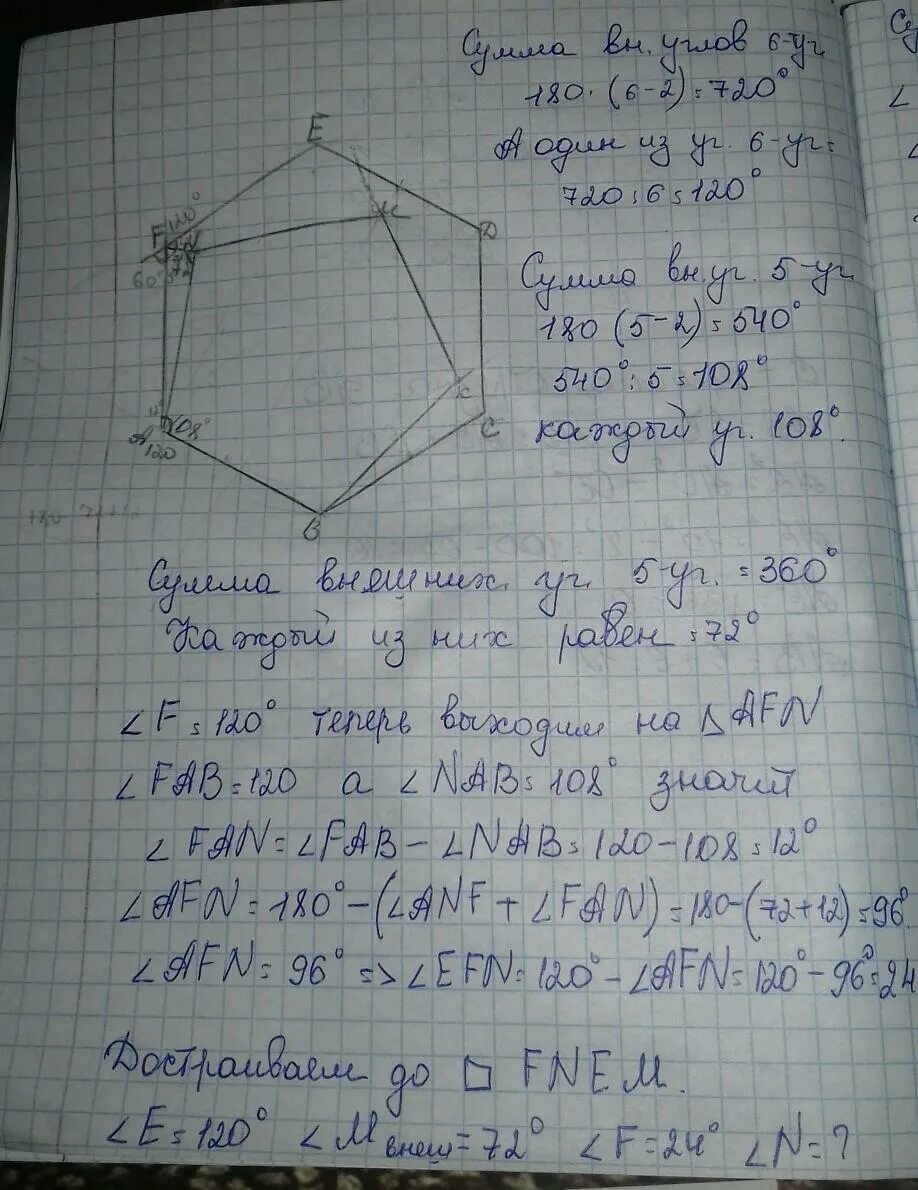 Сумма вн. углов 6-уг
180·(6-2)=720°
А один из уг. 6-уг=
720:6=120°
E
D
F 120°
60°
Сумма вн. уг. 5-уг.
180(5-2)=540°
540°:5=108°
каждый уг. 108°.
K
C
108°
A
120
B
Сумма внящних уг. 5-уг. = 360°
Каждый из них равен =72°
∠F=120° теперь выходим на △AFN
∠FAB=120 а ∠NAB=108° значит
∠FAN=∠FAB-∠NAB=120-108=12°
∠AFN=180°-(∠ANF+∠FAN)=180-(72+12)=96°
∠AFN=96° => ∠EFN=120°-∠AFN=120°-96°=24
Достраиваем до □ FNEM.
∠E=120° ∠M внеш=72° ∠F=24° ∠N=?